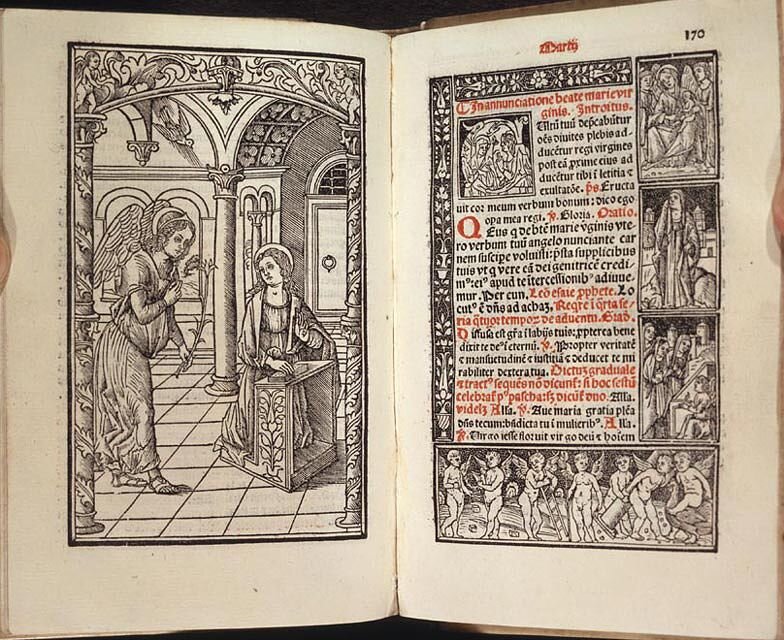 Martij
170
¶ In annunciatione beate marie vir
ginis. Introitus.
Vultū tuū dep̄cabūtur
oēs diuites plebis ad-
ducētur regi virgines
post eā proxime eius ad
ducētur tibi ī letitia ⁊
exultatōe. ps. Eructa
uit cor meum verbum bonum: dico ego
opa mea regi. ℣. Gloria. Oratio.
Deus q̇ de btē marie v̇ginis vte-
ro verbum tuū angelo nunciante car
nem suscipe voluisti: p̄sta supplicibus
tuis vt q̇ vere eā dei genitricē credi-
m⁹: ei⁹ apud te ītercessionib⁹ adiuue-
mur. Per eun. Lcō esaie p̄phete. Lo
cut⁹ ē dn̄s ad achaz. Reqre ī q̇rta fe-
ria q̇tuor tempoꝝ de aduentu. Grad.
Diffusa est gr̄a ī labijs tuis: ꝓpterea bene
dixit te de⁹ ī eternū. ℣. Propter veritatē
⁊ mansuetudinē ⁊ iustitiā ⁊ deducet te mi
rabiliter dextera tua. Dictus graduale
⁊ tract⁹ sequēs nō dicunt᷑: si hoc festū
celebrat᷑ p⁹ pascha: sꝫ dicūt᷑ duo. Alla.
videlꝫ Alla. ℣. Aue maria gratia plēa
dn̄s tecum: bn̄dicta tu ī mulierib⁹. Alla.
℣. Virgo iesse floruit virgo deū ⁊ hoīem